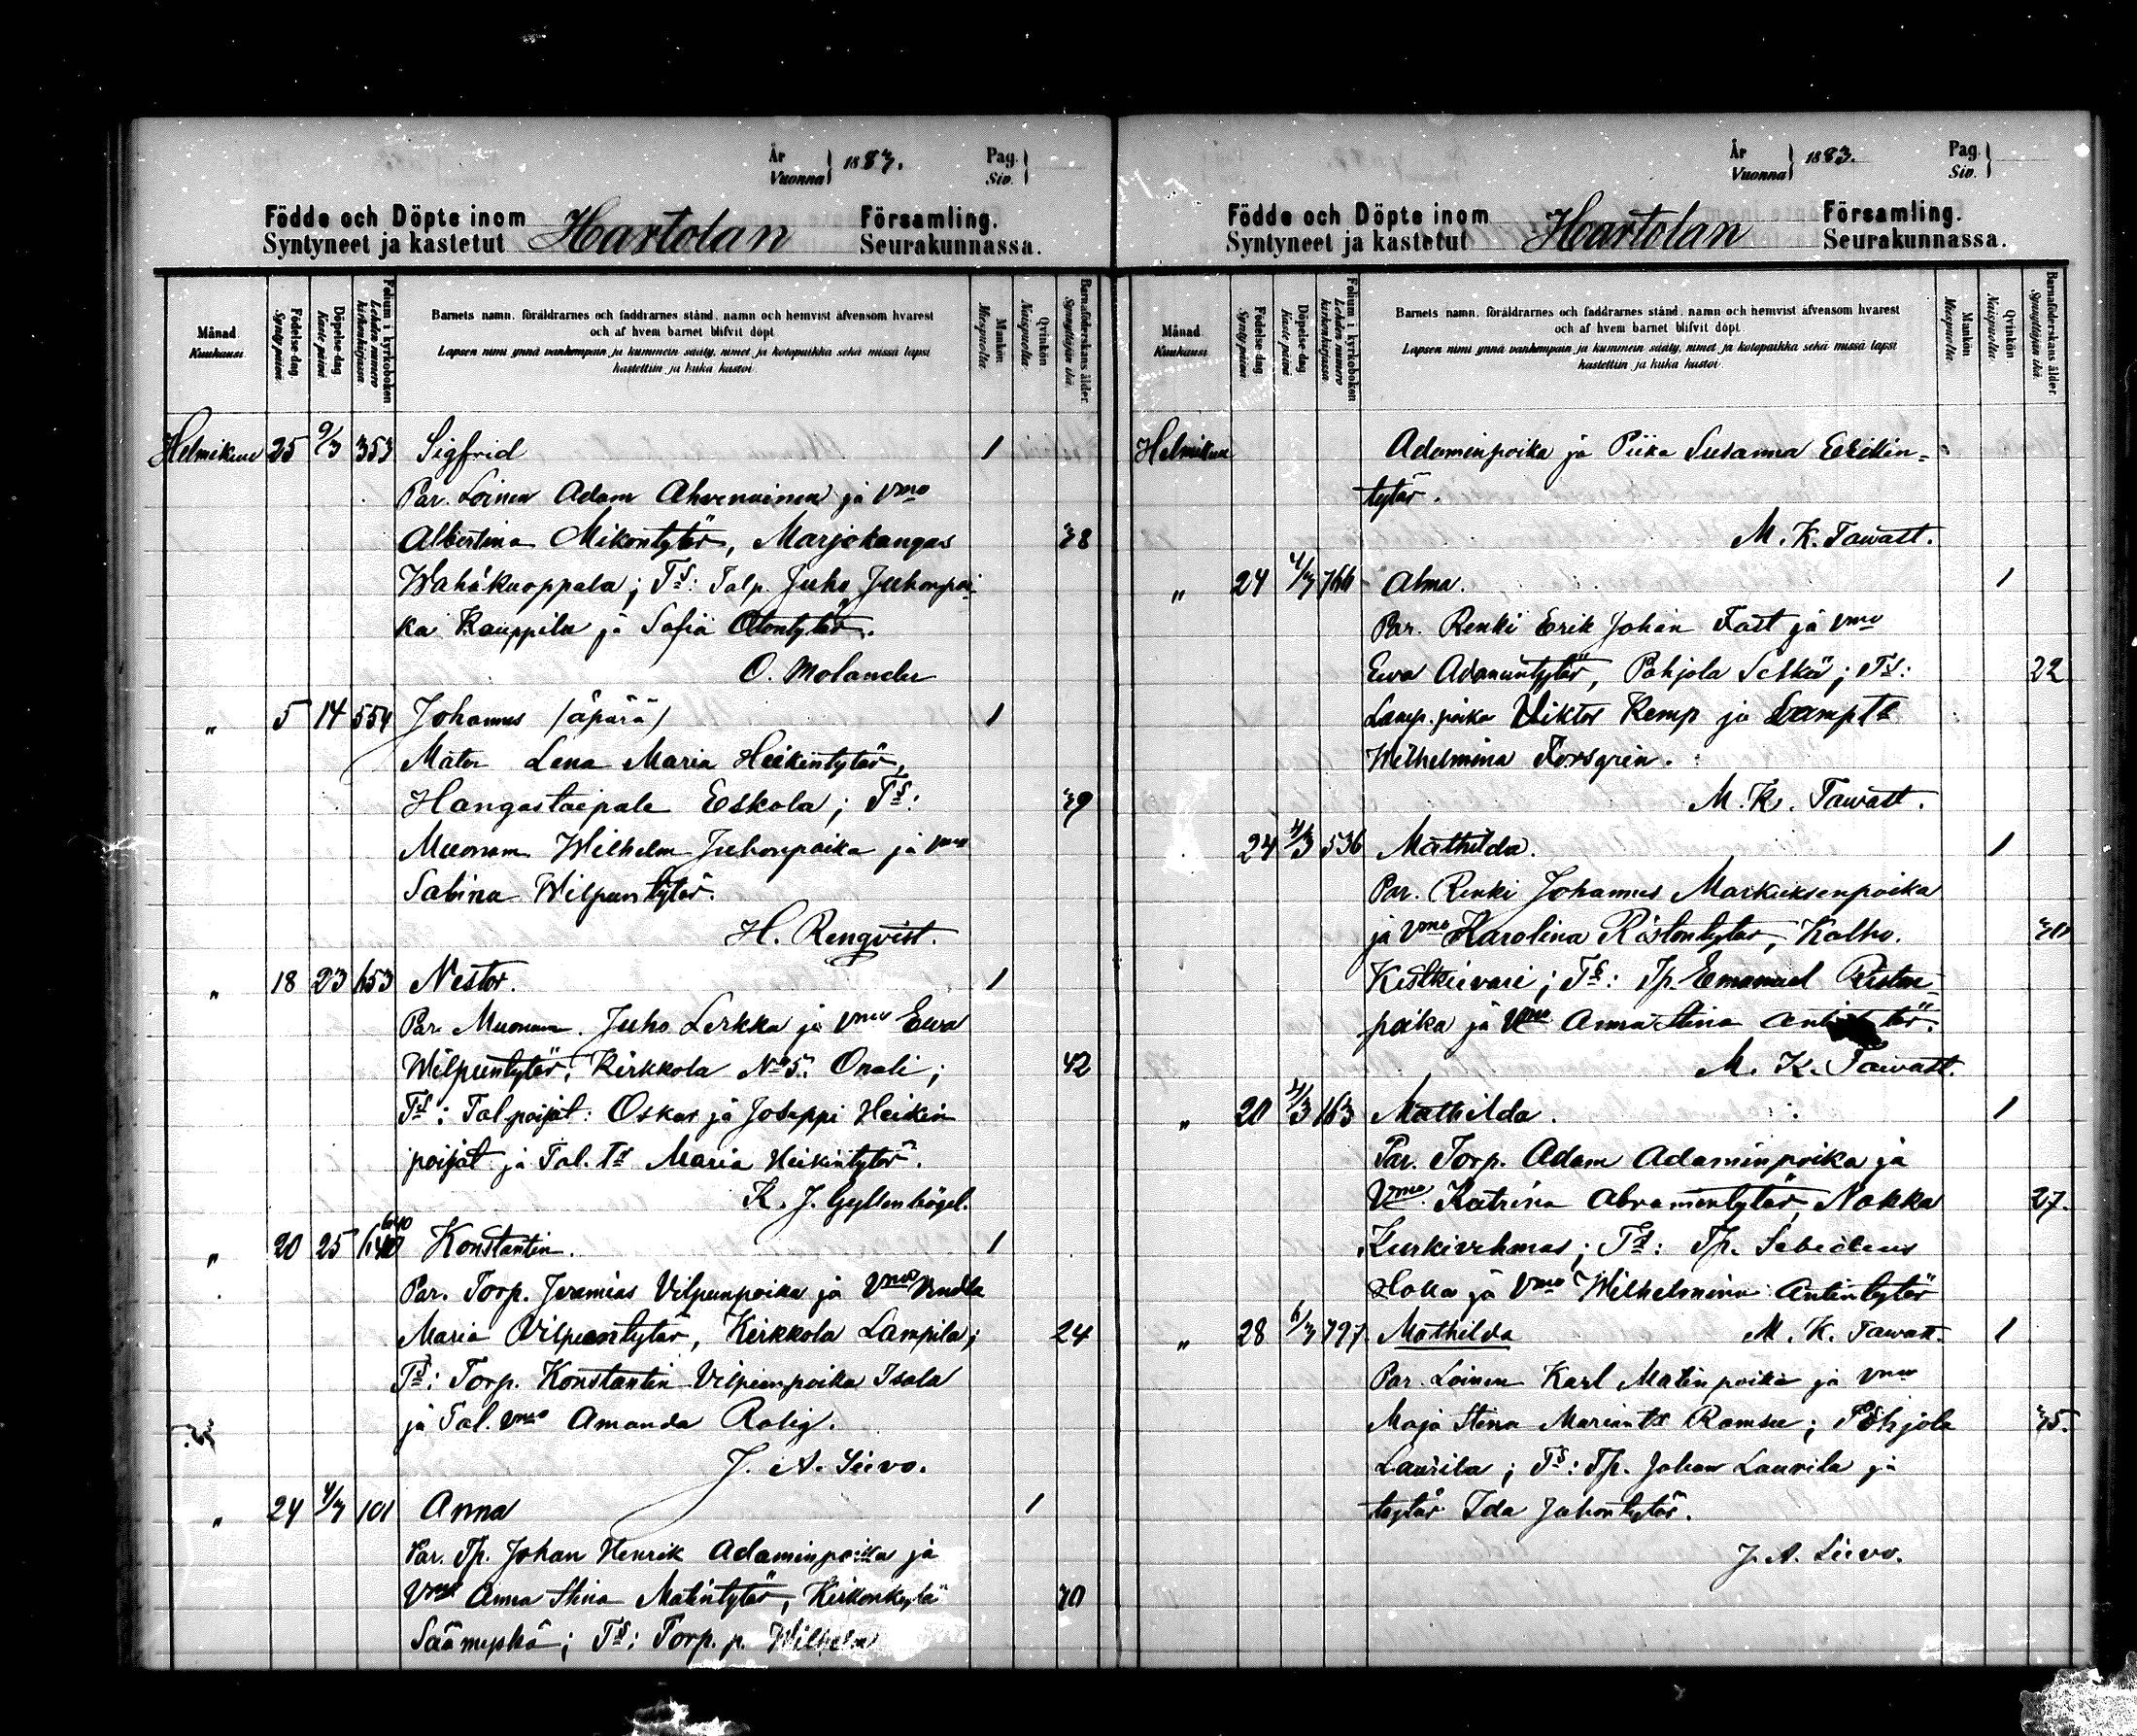 År
Vuonna } 1883.
Pag.
Siv. }
Födde och Döpte inom
Syntyneet ja kastetut
Hartolan
Församling.
Seurakunnassa.
Månad.
Kuukausi.
Födelse dag.
Synty päivä.
Döpelse dag
Kaste päivä
Folium i kyrkoboken
Lehden numero kirkonkirjassa.
Barnets namn, föräldrarnes och faddrarnes stånd, namn och hemvist äfvensom hvarest
och af hvem barnet blifvit döpt
Lapsen nimi ynnä vanhempain ja kummein sääty, nimet ja kotopaikka sekä missä lapsi
kastettiin ja kuka kastoi
Mankön
Miespuolta.
Qvinkön
Naispuolta.
Barnaföderskans ålder.
Synnyttäjän ikä.
Helmikuu 25 9/3 353 Sigfrid 1
Par. Loinen Adam Ahvenainen ja Vmo
Albertina Mikontytär, Marjokangas 38
Wahäkuoppala; Ts: Talp. Juho Juhonpoi-
ka Kauppila ja Sofia Otontytär.
O. Molander
„ 5 14 554 Johannes (äpärä) 1
Mater Lena Maria Heikintytär,
Hangastaipale Eskola; Ts: 39
Muonam. Wilhelm Juhonpoika ja Vmo
Sabina Wilpuntytär.
H. Renqvist.
„ 18 23 653 Nestor. 1
Par. Muonam. Juho Lerkka ja Vmo Ewa
Wilpuntytär, Kirkkola No 5. Onali; 42
Ts: Tal. pojat: Oskar ja Joseppi Heikin
pojat ja Tal. Ts Maria Heikintytär.
K. J. Gyllenbögel.
„ 20 25 640 640 Konstantin. 1
Par. Torp. Jeremias Vilpunpoika ja Vmo Vendla
Maria Vilpuntytär, Kirkkola Lampila; 24
Ts: Torp. Konstantin Vilpunpoika Isola
ja Tal. Vmo Amanda Rolig.
J. A. Siivo.
„ 24 4/3 101 Anna 1
Par. Tp. Johan Henrik Adaminpoika ja
Vmo Anna Stina Matintytär, Kirkonkylä 30
Säämyskä; Ts: Torp. p. Wilhelm
År
Vuonna } 1883.
Pag.
Siv. }
Födde och Döpte inom
Syntyneet ja kastetut
Hartolan
Församling.
Seurakunnassa.
Månad.
Kuukausi
Födelse dag
Synty päivä.
Döpelse dag
Kaste päivä
Folium i kyrkoboken
Lehden numero kirkonkirjassa.
Barnets namn, föräldrarnes och faddrarnes stånd, namn och hemvist äfvensom hvarest
och af hvem barnet blifvit döpt
Lapsen nimi ynnä vanhempain ja kummein sääty, nimet ja kotopaikka sekä missä lapsi
kastettiin ja kuka kastoi
Mankön
Miespuolta.
Qvinkön
Naispuolta.
Barnaföderskans ålder.
Synnyttäjän ikä.
Helmikuu Adaminpoika ja Piika Susanna Eerikin-
tytär.
M. K. Tawast.
„ 24 4/3 766 Alma. 1
Par. Renki Erik Johan Fast ja Vmo
Ewa Adamintytär, Pohjola Selkä; Ts: 22
Lamp. poika Viktor Kemp ja Lampts
Wilhelmina Forsgrén.
M. K. Tawast.
24 4/3 536 Mathilda. 1
Par. Renki Johannes Markuksenpoika
ja Vmo Karolina Ristontytär, Kalho.
Kestkiivari; Ts: Tp. Emanuel Riston-
poika ja Vmo Anna Stina
M. K. Tawast.
„ 20 4/3 163 Mathilda. 1
Par. Torp. Adam Adaminpoika ja
Vmo Katrina Abramintytär, Nokka 27.
Kurkivehmas; Ts: Tp. Sebedeus
Hoka ja Vmo Wilhelmina Antintytär
„ 28 6/3 797. Mathilda M. K. Tawast. 1
Par. Loinen Karl Matinpoika ja Vmo
Maja Stina Ramsu; Pohjola 35.
Laurila; Ts: Tp. Johan Laurila ja
tytär Ida Juhontytär.
J. A. Siivo.